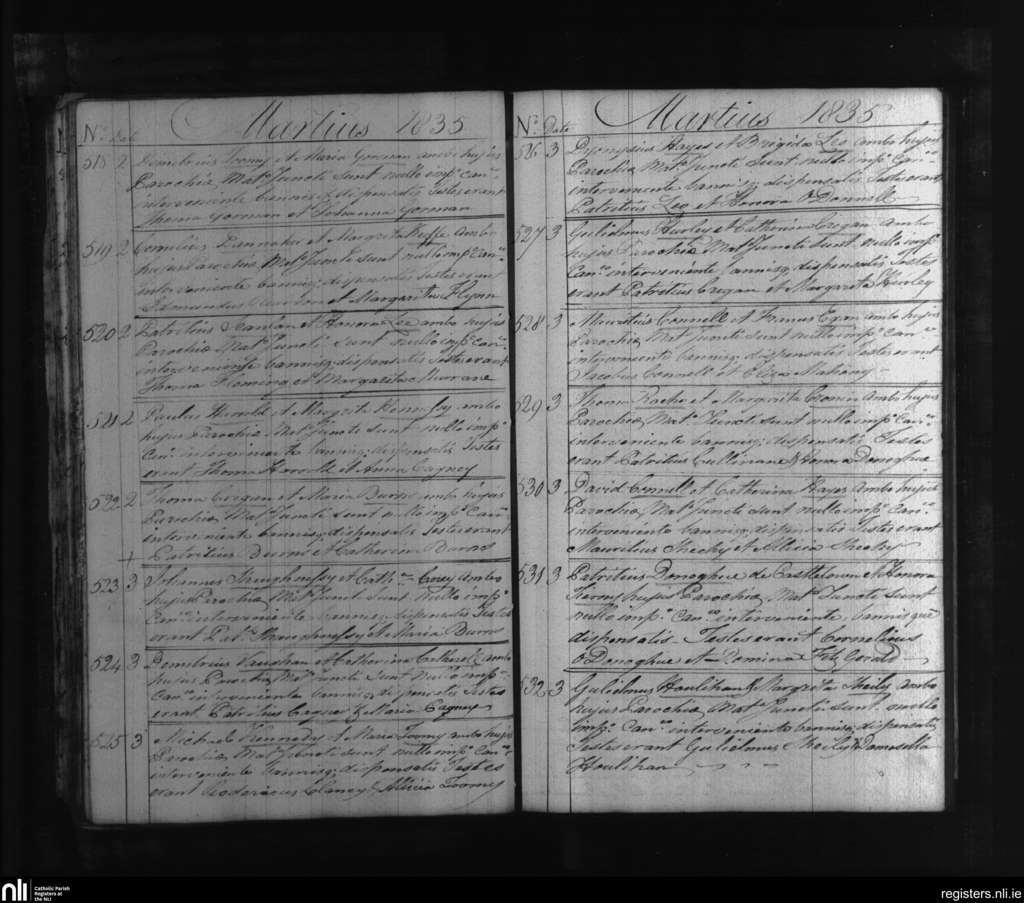 Martius 1835
No. Date
518 2 Demetrius Toomy et Maria Gorman ambo hujus
Parochiæ, Mat.o Juncti sunt nullo imp.o Can.co
interveniente bannisq; dispensatis Testes erant
Thoma Gorman et Johanna Gorman
519 2 Cornelius et Margarita Keeffe ambo
hujus Parochiæ, Mat.o Juncti sunt nullo imp.o Can.co
interveniente bannisq; dispensatis Testes erant
et Margarita Flynn
520 2 Patritius et Honora Lee ambo hujus
Parochiæ Mat.o Juncti sunt nullo imp.o Can.co
interveniente bannisq; dispensatis Testes erant
Thoma Fleming et Margarita Murrane
521 2 Paulus Harold et Margarita Hennessy ambo
hujus Parochiæ Mat.o Juncti sunt nullo imp.o
Can.co interveniente bannisq; dispensatis Testes
erant Thoma et Anna Cagney
522 2 Thoma Cregan et Maria Burns ambo hujus
Parochiæ, Mat.o Juncti sunt nullo imp.o Can.co
interveniente bannisq; dispensatis Testes erant
Patritius Burns et Catherina Burns
523 3 Johannes Shaughnessy et Cath.na Carey ambo
hujus Parochiæ Mat.o Juncti sunt nullo imp.o
Can.co interveniente bannisq; dispensatis Testes
erant Pat.s Shaughnessy et Maria Burns
524 3 Demetrius Vaughan et Catherina ambo
hujus Parochiæ, Mat.o Juncti sunt nullo imp.o
Can.co interveniente bannisq; dispensatis Testes
erant Patritius Cagney & Maria Cagney
525 3 Michael Kennedy et Maria Toomy ambo hujus
Parochiæ, Mat.o Juncti sunt nullo imp.o Can.co
interveniente bannisq; dispensatis Testes
erant Rodericus Clancy & Alicia Toomy
Martius 1835
No. Date
526 3 Dionysius Hayes et Brigita Leo ambo hujus
Parochiæ, Mat.o Juncti sunt nullo imp.o Can.co
interveniente bannisq; dispensatis Testes erant
Patritius Leo et Honora O'Donnell
527 3 Gulielmus Hurley et Catherina Cregan ambo
hujus Parochiæ Mat.o Juncti sunt nullo imp.o
Can.co interveniente bannisq; dispensatis Testes
erant Patritius Cregan et Margarita Hurley
528 3 Mauritius Connell et Honora Egan ambo hujus
Parochiæ, Mat.o Juncti sunt nullo imp.o Can.co
interveniente bannisq; dispensatis Testes erant
Jacobus Connell et Eliza Mahony
529 3 Thoma Roche et Margarita Cronin ambo hujus
Parochiæ, Mat.o Juncti sunt nullo imp.o Can.co
interveniente bannisq; dispensatis Testes
erant Patritius Cullinane & Honora Donoghue
530 3 David Connell et Catherina Hayes ambo hujus
Parochiæ, Mat.o Juncti sunt nullo imp.o Can.co
interveniente bannisq; dispensatis Testes erant
Mauritius Sheehy et Alicia Sheehy
531 3 Patritius Donoghue de Castletown et Honora
hujus Parochiæ, Mat.o Juncti sunt
nullo imp.o Can.co interveniente, bannisque
dispensatis - Testes erant Cornelius
O'Donoghue et Domina Fitz Gerald
532 3 Gulielmus Houlihan & Margarita Sheily ambo
hujus Parochiæ, Mat.o Juncti sunt nullo
imp.o Can.co interveniente bannisq; dispensatis
Testes erant Gulielmus Sheily & Domisella
Houlihan
nli Catholic Parish
Registers at
the NLI
registers.nli.ie